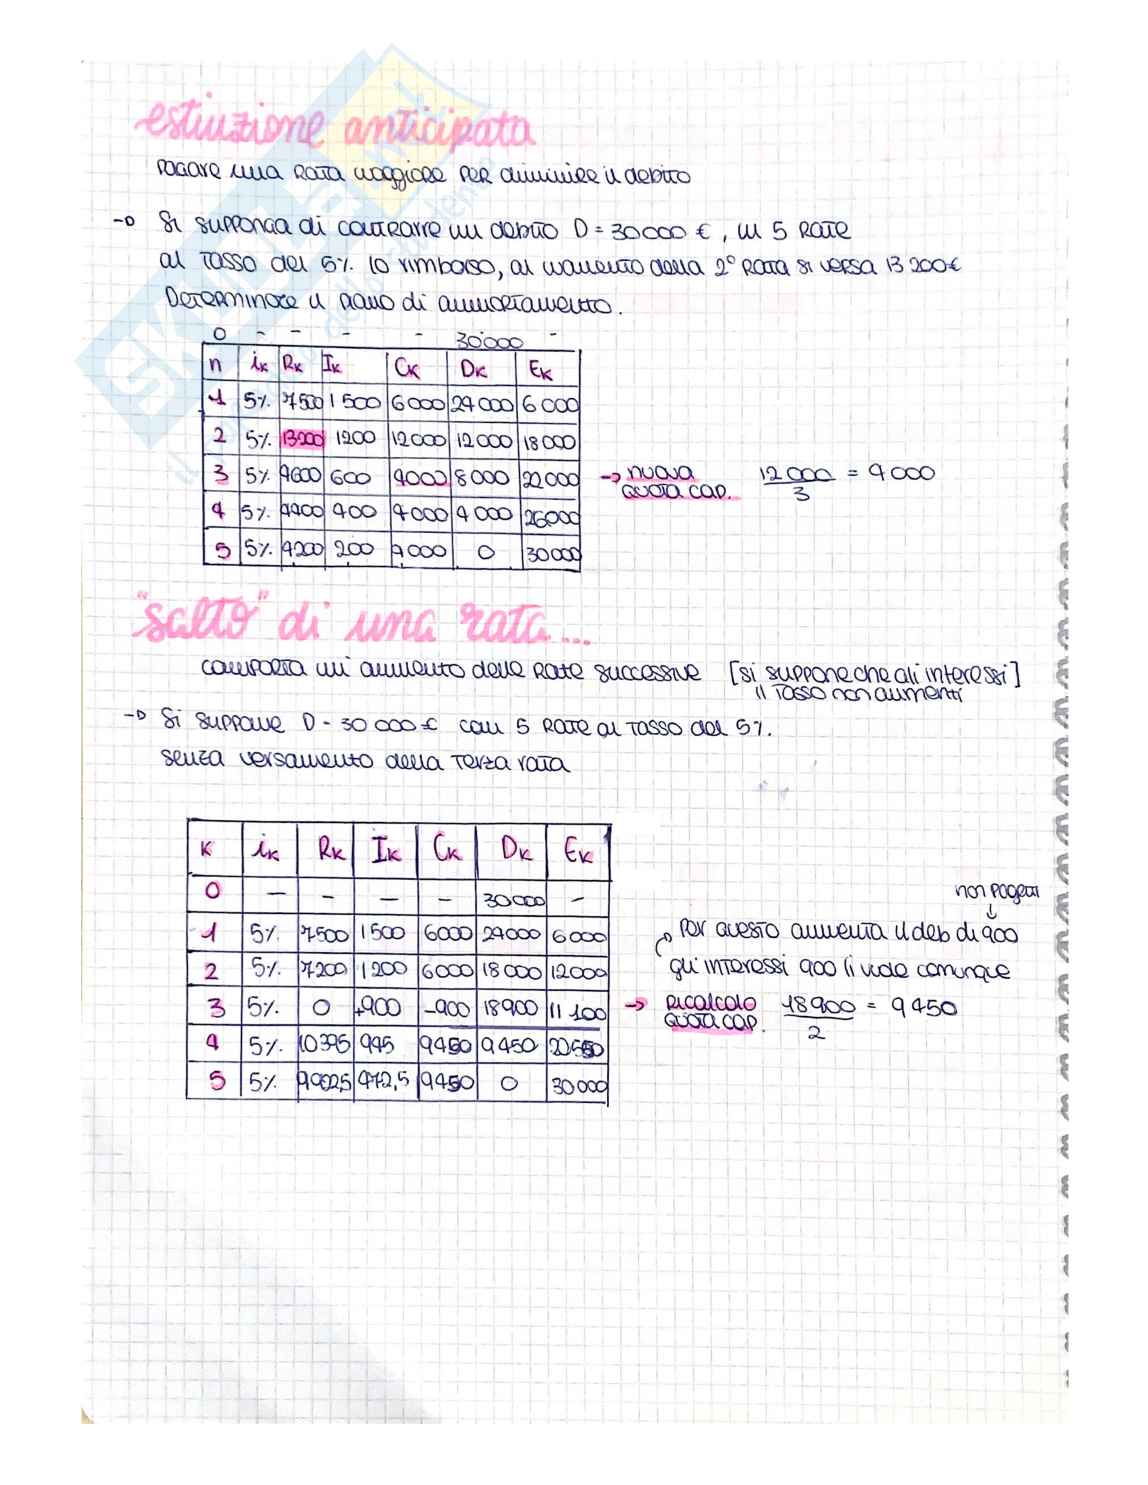 estinzione anticipata
pagare una rata maggiore per diminuire il debito
→ Si supponga di contrarre un debito D = 30000 €, in 5 rate
al tasso del 5%. lo rimborso, al momento della 2° rata si versa 13200€
Determinare il piano di ammortamento.
0 - - - - 30'000 -
n iK RK IK CK DK EK
1 5% 7500 1500 6000 24000 6000
2 5% 13200 1200 12000 12000 18000
3 5% 4600 600 4000 8000 22000 → nuova
quota cap. 12000/3 = 4000
4 5% 4400 400 4000 4000 26000
5 5% 4200 200 4000 0 30000
"salto" di una rata...
comporta un aumento delle rate successive [si suppone che gli interessi]
il tasso non aumenti
→ Si suppone D = 30000€ con 5 rate al tasso del 5%.
senza versamento della terza rata
K iK RK IK CK DK EK
0 - - - - 30000 -
non pagata
↓
1 5% 7500 1500 6000 24000 6000 Per questo aumenta il deb di 900
2 5% 7200 1200 6000 18000 12000 gli interessi 900 li vuole comunque
3 5% 0 +900 -900 18900 11100 → Ricalcolo
quota cap. 18900/2 = 9450
4 5% 10395 945 9450 9450 20550
5 5% 9922,5 472,5 9450 0 30000
SKUOLA